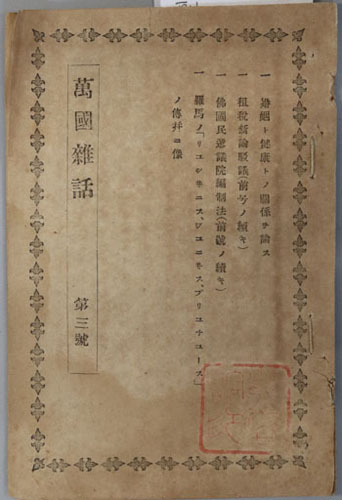 一 婚姻ト健康トノ關係ヲ論ス
一 租税新論駁議(前号ノ續キ)
一 佛國民選議院編制法(前號ノ續キ)
一 羅馬ノ「リユシユニユス、ジユニユス、ブリユチユース」
ノ傳并ニ像
萬國雜話 第三號